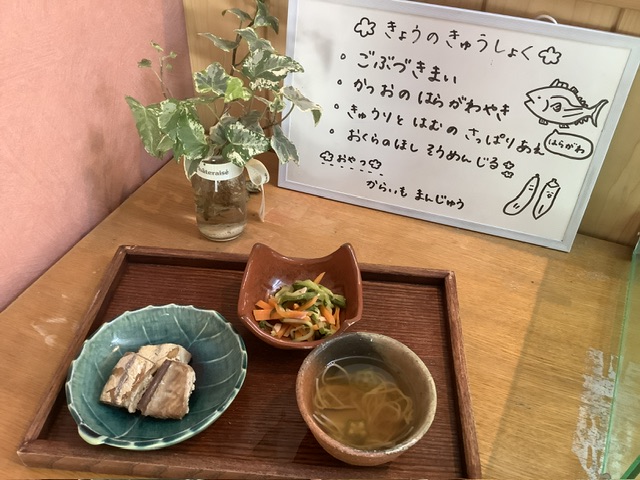 きょうのきゅうしょく
・ごぶづきまい
・かつおのはらがわやき
・きゅうりとはむのさっぱりあえ
・おくらのほしそうめんじる
はらがわ
おやつ
からいもまんじゅう